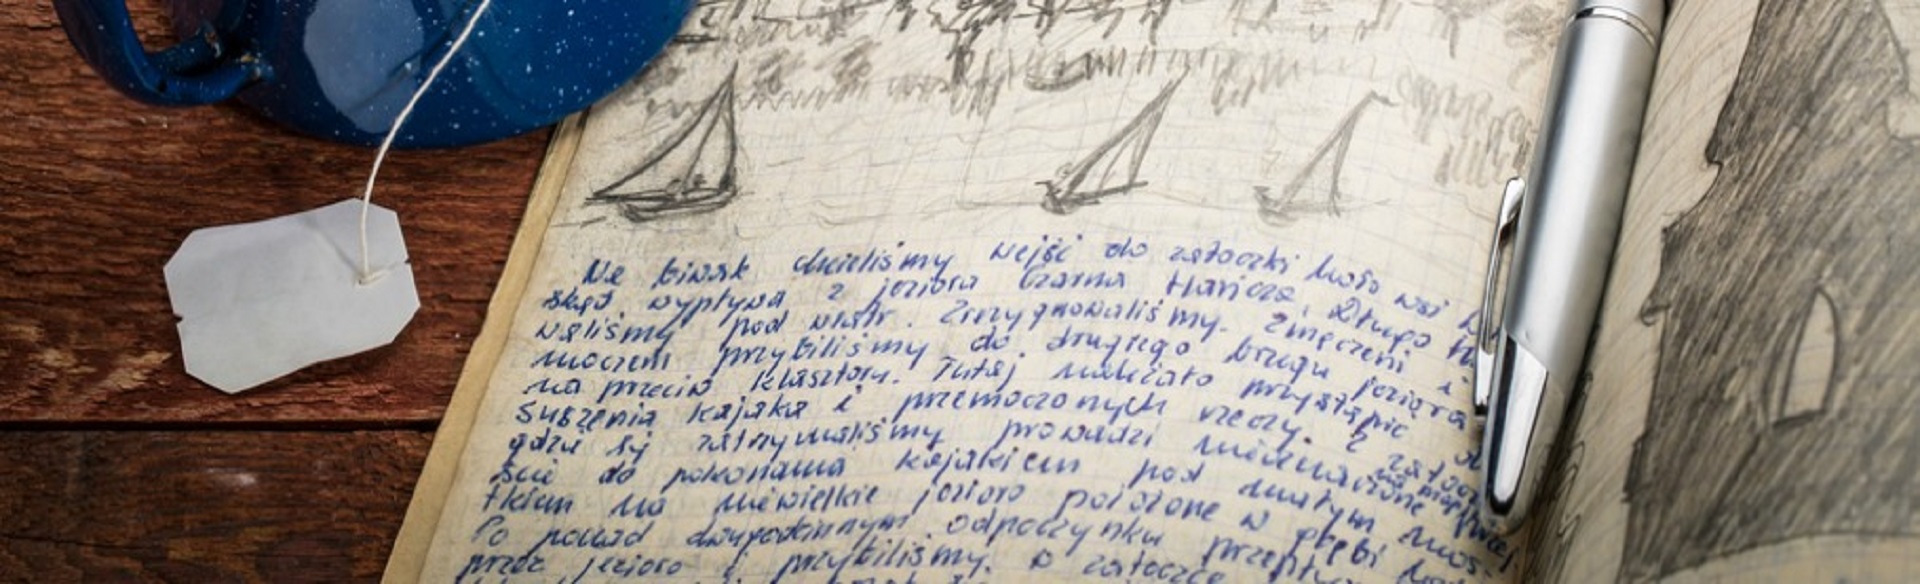 Na biwak chcieliśmy wejść do zatoczki koło wsi
skąd wypływa z jeziora Czarna Hańcza. Długo
waliśmy pod wiatr. Zrezygnowaliśmy. Zmęczeni i
moczeni przybiliśmy do drugiego brzegu jeziora
na przeciw klasztoru. Tutaj należało przystąpić
suszenia kajaka i przemoczonych rzeczy. Z zatocz
gdzie się zatrzymaliśmy prowadzi nieoznaczone na mapie
ście do pokonania kajakiem pod
tkiem na niewielkie jezioro położone w głębi
Po ponad dwugodzinnym odpoczynku
przez jezioro i przybiliśmy. w zatoczce